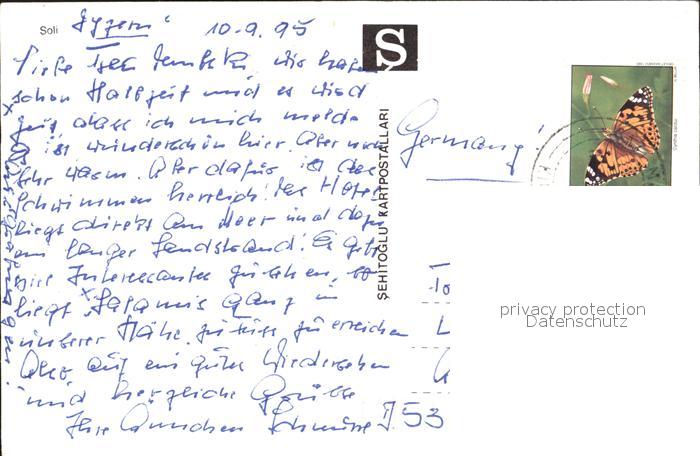 Soli
Zypern
10.9.95
Liebe wir haben
schon Halbzeit und es wird
Zeit, dass ich mich melde
Es ist wunderschön hier. Aber noch
sehr warm. Aber dafür ist das
Schwimmen herrlich! Das Hotel
liegt direkt am Meer und dazu
ein langer Sandstrand! Es gibt
viele Interessantes zu sehen, so
liegt "Salamis" ganz in
unserer Nähe, zu Fuss zu erreichen
Also auf ein gutes Wiedersehen
und herzliche Grüsse
Ihre
Germany!
S
ŞEHİTOĞLU KARTPOSTALLARI
J 53
privacy protection
Datenschutz